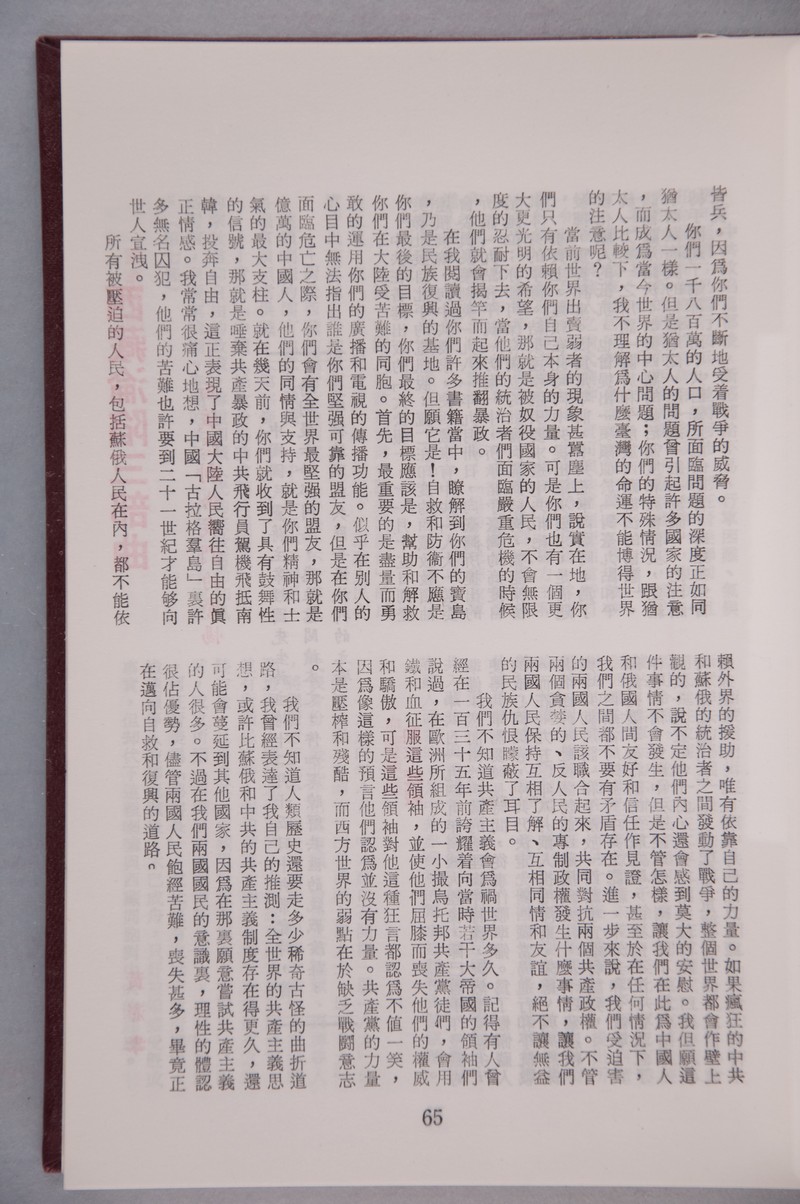 皆兵，因爲你們不斷地受着戰爭的威脅。
你們一千八百萬的人口，所面臨問題的深度正如同
猶太人一樣。但是猶太人的問題曾引起許多國家的注意
，而成爲當今世界的中心問題；你們的特殊情況，跟猶
太人比較下，我不理解爲什麼臺灣的命運不能博得世界
的注意呢？
當前世界出賣弱者的現象甚囂塵上，說實在地，你
們只有依賴你們自己本身的力量。可是你們也有一個更
大更光明的希望，那就是被奴役國家的人民，不會無限
度的忍耐下去，當他們的統治者們面臨嚴重危機的時候
，他們就會揭竿而起來推翻暴政。
在我閱讀過你們許多書籍當中，瞭解到你們的寶島
，乃是民族復興的基地。但願它是！自救和防衞不應是
你們最後的目標，你們最終的目標應該是，幫助和解救
你們在大陸受苦難的同胞。首先，最重要的是盡量而勇
敢的運用你們的廣播和電視的傳播功能。似乎在別人的
心目中無法指出誰是你們堅强可靠的盟友，但是在你們
面臨危亡之際，你們會有全世界最堅强的盟友，那就是
億萬的中國人，他們的同情與支持，就是你們精神和士
氣的最大支柱。就在幾天前，你們就收到了具有鼓舞性
的信號，那就是唾棄共產暴政的中共飛行員駕機飛抵南
韓，投奔自由，這正表現了中國大陸人民嚮往自由的眞
正情感。我常常很痛心地想，中國「古拉格羣島」裏許
多無名囚犯，他們的苦難也許要到二十一世紀才能够向
世人宣洩。
所有被壓迫的人民，包括蘇俄人民在內，都不能依
賴外界的援助，唯有依靠自己的力量。如果瘋狂的中共
和蘇俄的統治者之間發動了戰爭，整個世界都會作壁上
觀的，說不定他們內心還會感到莫大的安慰。我但願這
件事情不會發生，但是不管怎樣，讓我們在此爲中國人
和俄國人間友好和信任作見證，甚至於在任何情況下，
我們之間都不要有矛盾存在。進一步來說，我們受迫害
的兩國人民該職合起來，共同對抗兩個共產政權。不管
兩個貪婪的、反人民的專制政權發生什麼事情，讓我們
兩國人民保持互相了解、互相同情和友誼，絕不讓無益
的民族仇恨矇蔽了耳目。
我們不知道共產主義會爲禍世界多久。記得有人曾
經在一百三十五年前誇耀着向當時若干大帝國的領袖們
說過，在歐洲所組成的一小撮烏托邦共產黨徒們，會用
鐵和血征服這些領袖，並使他們屈膝而喪失他們的權威
和驕傲，可是這些領袖對他這種狂言都認爲不值一笑，
因爲像這樣的預言他們認爲並沒有力量。共產黨的力量
本是壓榨和殘酷，而西方世界的弱點在於缺乏戰鬪意志
。
我們不知道人類歷史還要走多少稀奇古怪的曲折道
路，我曾經表達了我自己的推測：全世界的共產主義思
想，或許比蘇俄和中共的共產主義制度存在得更久，還
可能會蔓延到其他國家，因爲在那裏願意嘗試共產主義
的人很多。不過在我們兩國國民的意識裏，理性的體認
很佔優勢，儘管兩國人民飽經苦難，喪失甚多，畢竟正
在邁向自救和復興的道路。
65